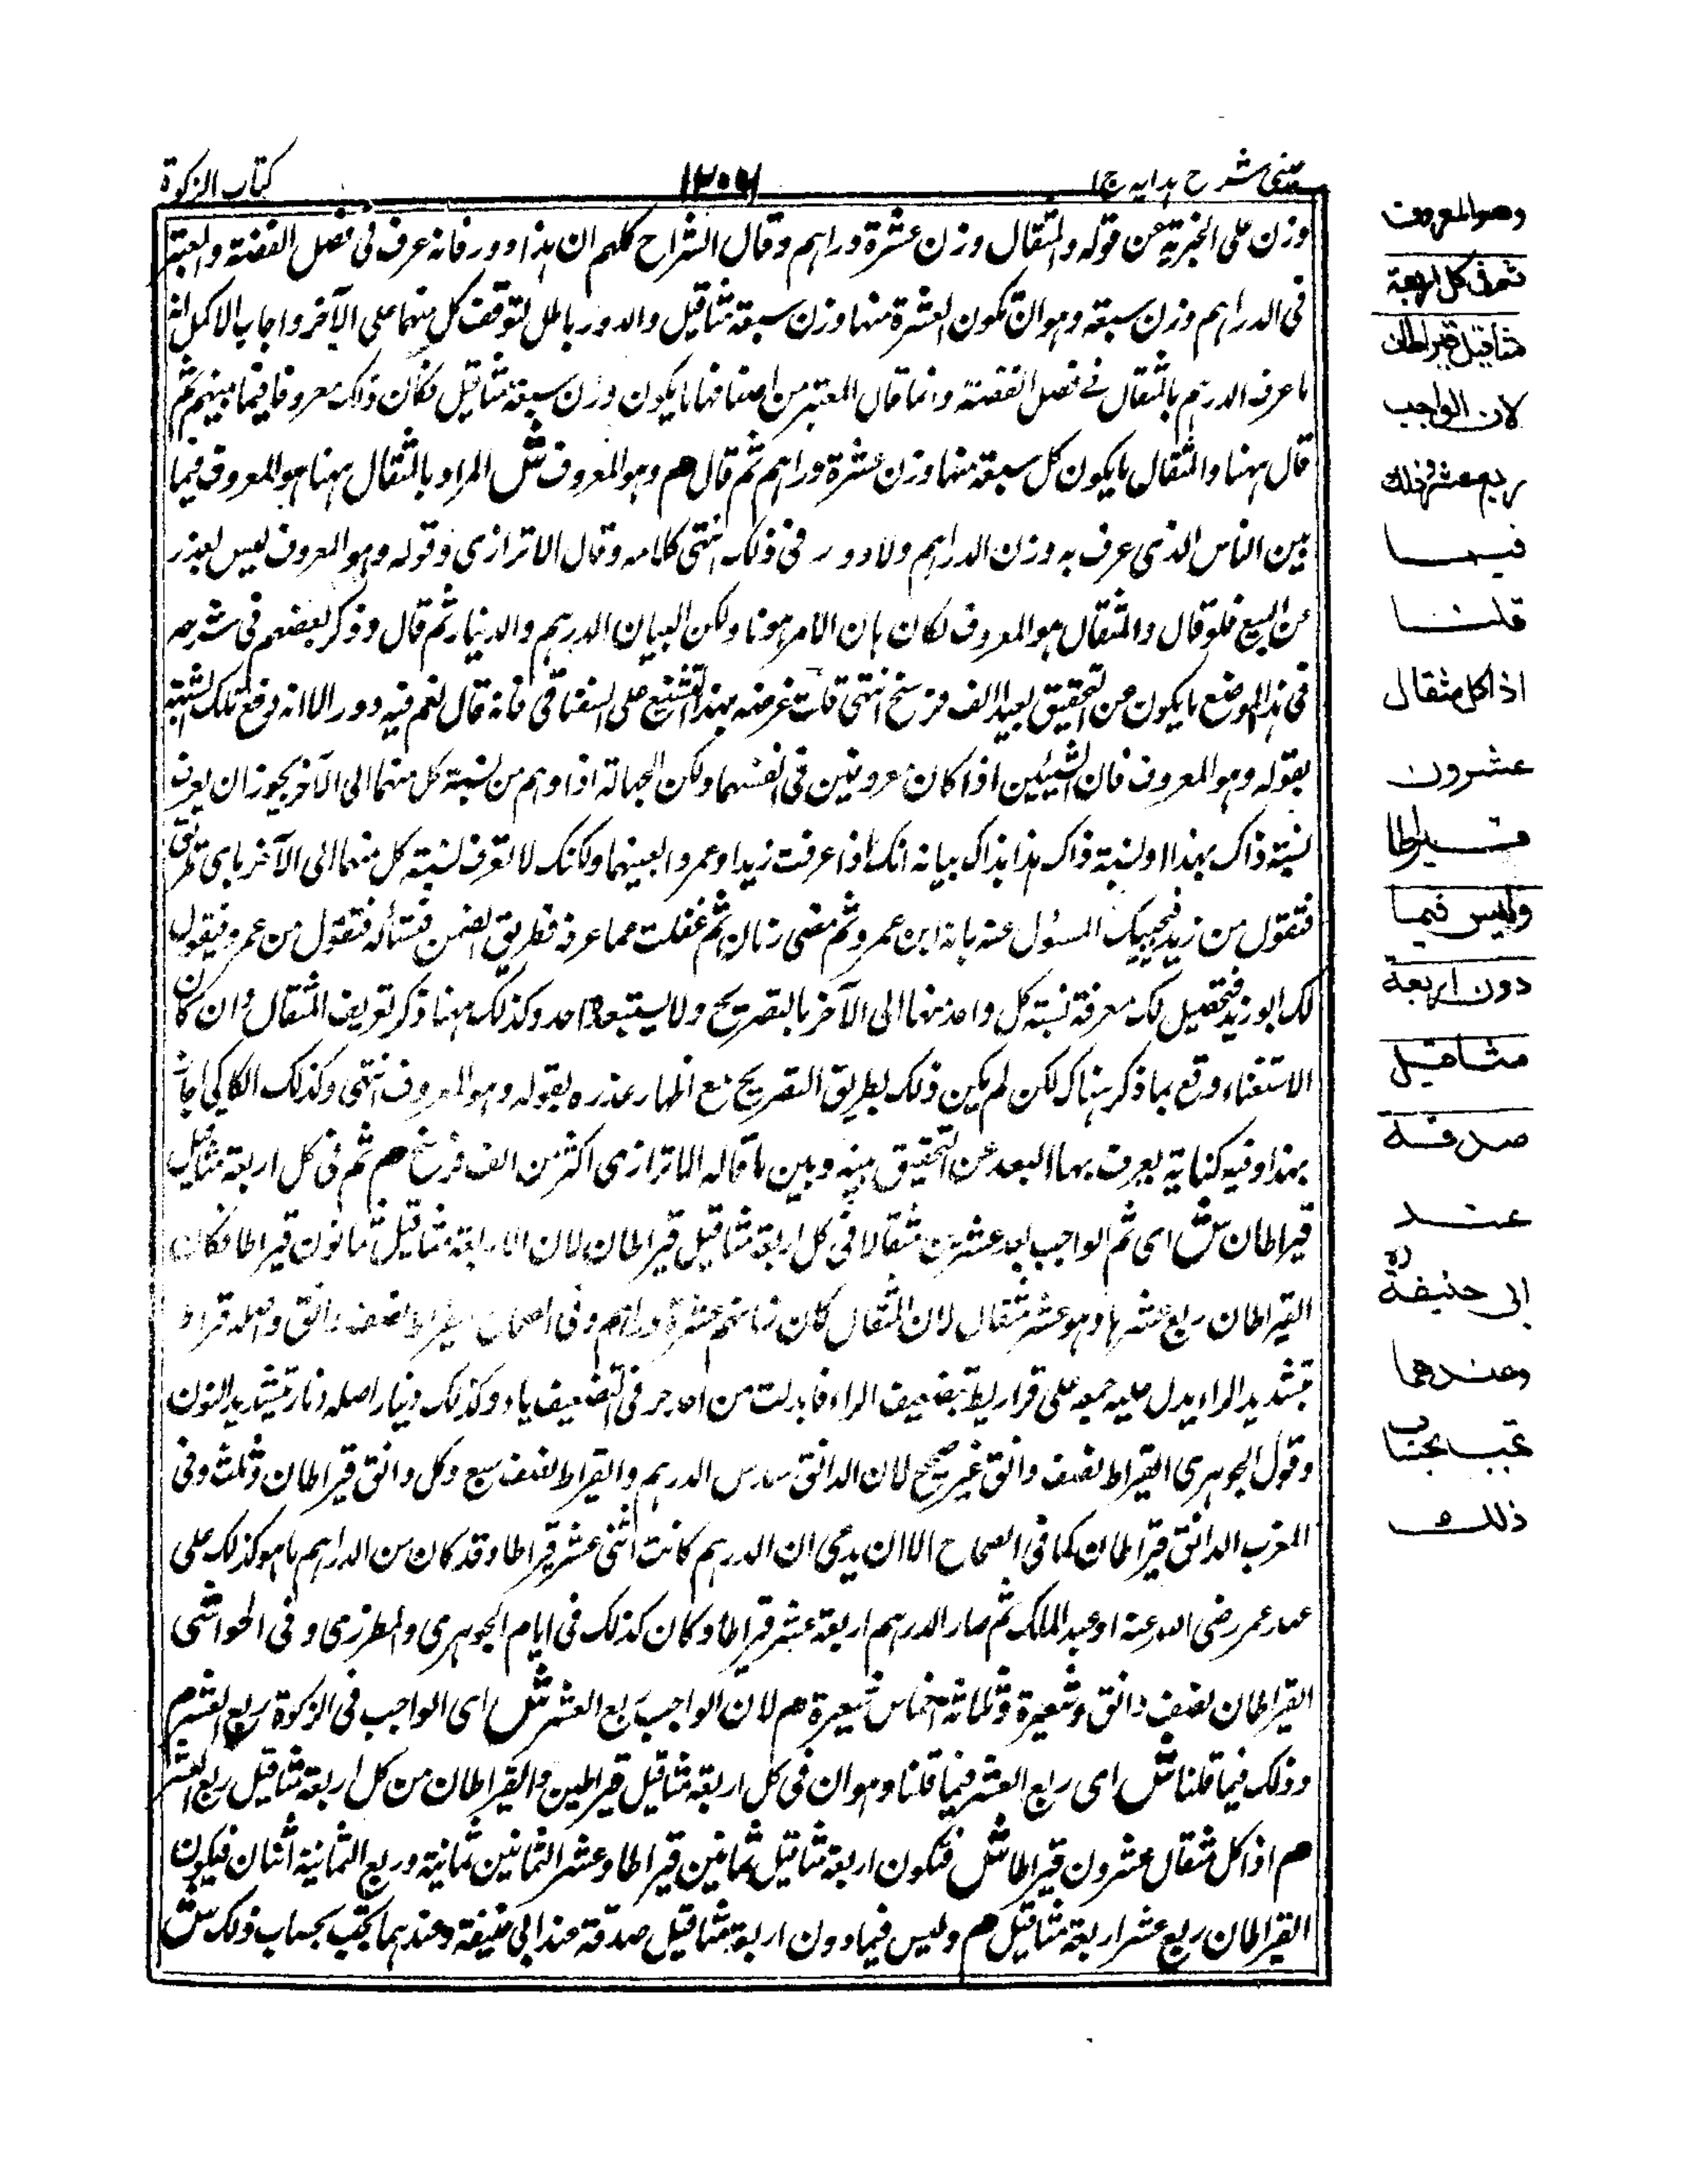 عینی شرح ہدایہ ج ا
۱۲۰۶
کتاب الزکوة
وزن على الخبرية عن قوله والمثقال وزن عشرة دراهم وقال الشراح كلهم ان هذا دور فانه عرف فى فصل الفضة والمعتبر
فى الدراهم وزن سبعة وهو ان تكون العشرة منها وزن سبعة مثاقيل والدور باطل لتوقف كل منهما على الآخر واجاب الاكمل انه
ما عرف الدرهم بالمثقال فى فصل الفضة وانما قال المعتبر من اصنافها ما يكون وزن سبعة مثاقيل فكان ذلك معروفا فيما بينهم ثم
قال ههنا والمثقال ما يكون كل سبعة منها وزن عشرة دراهم ثم قال هم وهو المعروف ش المراد بالمثقال ههنا هو المعروف فيما
بين الناس الذى عرف به وزن الدراهم ولا دور فى ذلك انتهى كلامه وقال الاترازى وقوله وهو المعروف ليس بعذر
عن البيع فلو قال والمثقال هو المعروف لكان بان الامر هونا ولكن البيان الدرهم والدينار ثم قال وذكر بعضهم فى شرحه
فى هذا الموضع ما يكون من التحقيق بعيد الف فرسخ انتهى قلت غرضه بهذا التشنيع على السغناقى فانه قال نعم فيه دور الا انه دفع تلك الشبهة
بقوله وهو المعروف فان الشيئين اذا كانا معروفين فى انفسهما ولكن الجهالة اذا وهم من نسبة كل منهما الى الآخر يجوز ان يعرف
نسبة ذاك بهذا او نسبة ذاك هذا بذاك بيانه انك اذا عرفت زيدا وعمروا بعينهما ولكنك لا تعرف نسبة كل منهما الى الآخر باى طريق
فتقول من زيد فيجيبك المسئول عنه بانه ابن عمرو ثم مضى زمان ثم غفلت مما عرفه فطريق الضمن فتسأله فتقول من عمرو فيقول
لك ابو زيد فتحصل لك معرفة نسبة كل واحد منهما الى الآخر بالتصريح ولا يستبعده احد وكذلك ههنا ذكر تعريف المثقال وان كان
الاستغناء وقع بما ذكر هناك لكن لم يكن ذلك بطريق التصريح مع اظهار عذره بقوله وهو المعروف انتهى وكذلك الكاكى اجاب
بهذا وفيه كناية يعرف بها البعد عن التحقيق بينه وبين ما قاله الاترازى اكثر من الف فرسخ هم ثم فى كل اربعة مثاقيل
قيراطان ش اى ثم الواجب بعد عشرين مثقالا فى كل اربعة مثاقيل قيراطان لان الاربعة مثاقيل ثمانون قيراطا فكان
القيراطان ربع عشرها وهو عشر مثقال لان المثقال كان زنته عشرة دراهم وفى الصحاح القيراط نصف دانق واصله قراط
بتشديد الراء يدل عليه جمعه على قراريط بتضعيف الراء فابدلت من احد حرفى التضعيف ياء وكذلك دينار اصله دنار بتشديد النون
وقول الجوهرى القيراط نصف دانق غير صحيح لان الدانق سدس الدرهم والقيراط نصف سبع وكل دانق قيراطان وثلث وفى
المغرب الدانق قيراطان كما فى الصحاح الا ان يدعى ان الدرهم كانت اثنى عشر قيراطا وقد كان من الدراهم ما هو كذلك على
عهد عمر رضى الله عنه او عبد الملك ثم صار الدرهم اربعة عشر قيراطا وكان كذلك فى ايام الجوهرى والمطرزى وفى الحواشى
القيراطان نصف دانق وشعيرة وثلاثة اخماس شعيرة هم لان الواجب ربع العشر ش اى الواجب فى الزكوة ربع العشر هم
وذلك فيما قلنا ش اى ربع العشر فيما قلنا وهو ان فى كل اربعة مثاقيل قيراطين والقيراطان من كل اربعة مثاقيل ربع العشر
هم اذ كل مثقال عشرون قيراطا ش فتكون اربعة مثاقيل ثمانين قيراطا وعشر الثمانين ثمانية وربع الثمانية اثنان فيكون
القيراطان ربع عشر اربعة مثاقيل هم وليس فيما دون اربعة مثاقيل صدقة عند ابى حنيفة وعندهما تجب بحساب ذلك ش
وهو المعروف
ثم فى كل اربعة
مثاقيل قيراطان
لان الواجب
ربع عشر ذلك
فيما
قلنا
اذ كل مثقال
عشرون
قيراطا
وليس فيما
دون اربعة
مثاقيل
صدقة
عند
ابى حنيفة رح
وعندهما
تجب بحساب
ذلك